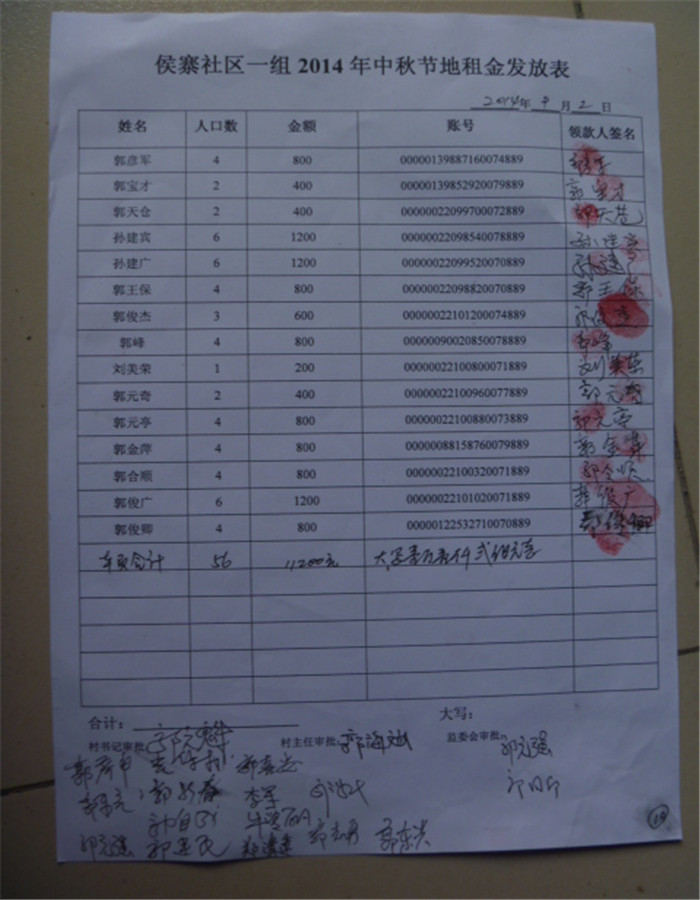 侯寨社区一组 2014 年中秋节地租金发放表
2014年 9 月 2 日
姓名 人口数 金额 账号 领款人签名
郭彦军 4 800 00000139887160074889
郭宝才 2 400 00000139852920079889 郭宝才
郭天仓 2 400 00000022099700072889 郭天苍
孙建宾 6 1200 00000022098540078889
孙建广 6 1200 00000022099520070889 孙建广
郭王保 4 800 00000022098820070889 郭王保
郭俊杰 3 600 00000022101200074889 郭俊杰
郭峰 4 800 00000090020850078889 郭峰
刘美荣 1 200 00000022100800071889 刘美荣
郭元奇 2 400 00000022100960077889 郭元奇
郭元亭 4 800 00000022100880073889 郭元亭
郭金萍 4 800 00000088158760079889 郭金萍
郭合顺 4 800 00000022100320071889 郭合顺
郭俊广 6 1200 00000022101020071889 郭俊广
郭俊卿 4 800 00000122532710070889 郭俊卿
本页合计 56 11200元 大写壹万壹仟贰佰元整
合计： 大写：
村书记审批 村主任审批 郭海 监委会审批 郭元强
李军
郭元强 郭建民 郭东光
19